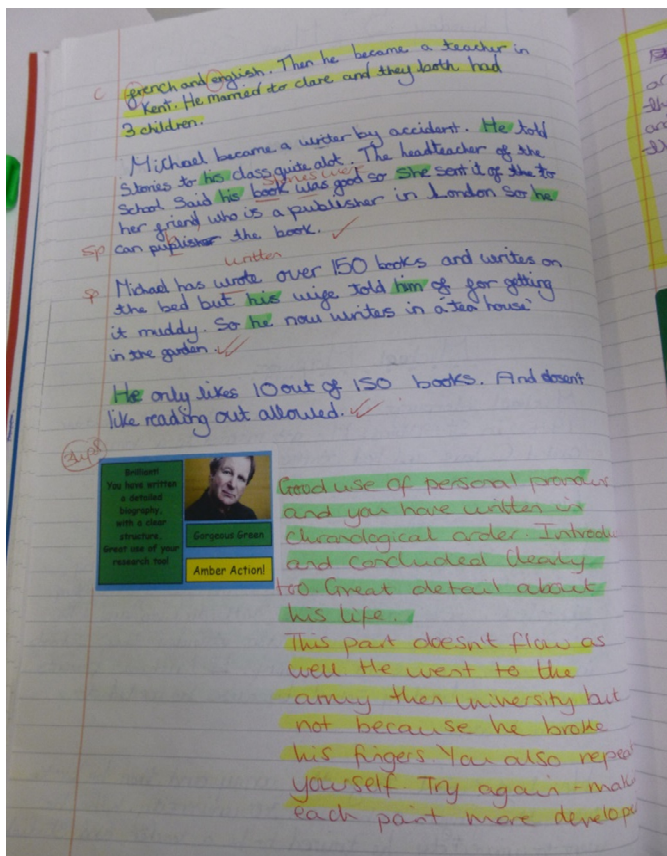 C french and english. Then he became a teacher in
Kent. He married to clare and they both had
3 children.
Michael became a writer by accident. He told
stories to his class quite alot. The headteacher of the
School Said his book was good so she sent it of the to
her friend, who is a publisher in London so he
Sp can publisher the book.
written
Sp Michael has wrote over 150 books and writes on
the bed but his wife told him of for getting
it muddy. So he now writes in a 'tea house'
in the garden.
He only likes 10 out of 150 books. And dosen't
like reading out allowed.
Brilliant!
You have written
a detailed
biography,
with a clear
structure.
Great use of your
research too!
Gorgeous Green
Amber Action!
Good use of personal pronouns
and you have written in
chronological order. Introdu
and concluded clearly
too. Great detail about
his life.
This part doesn't flow as
well He went to the
army then University but
not because he broke
his fingers. You also repeat
yourself. Try again - make
each part more develope